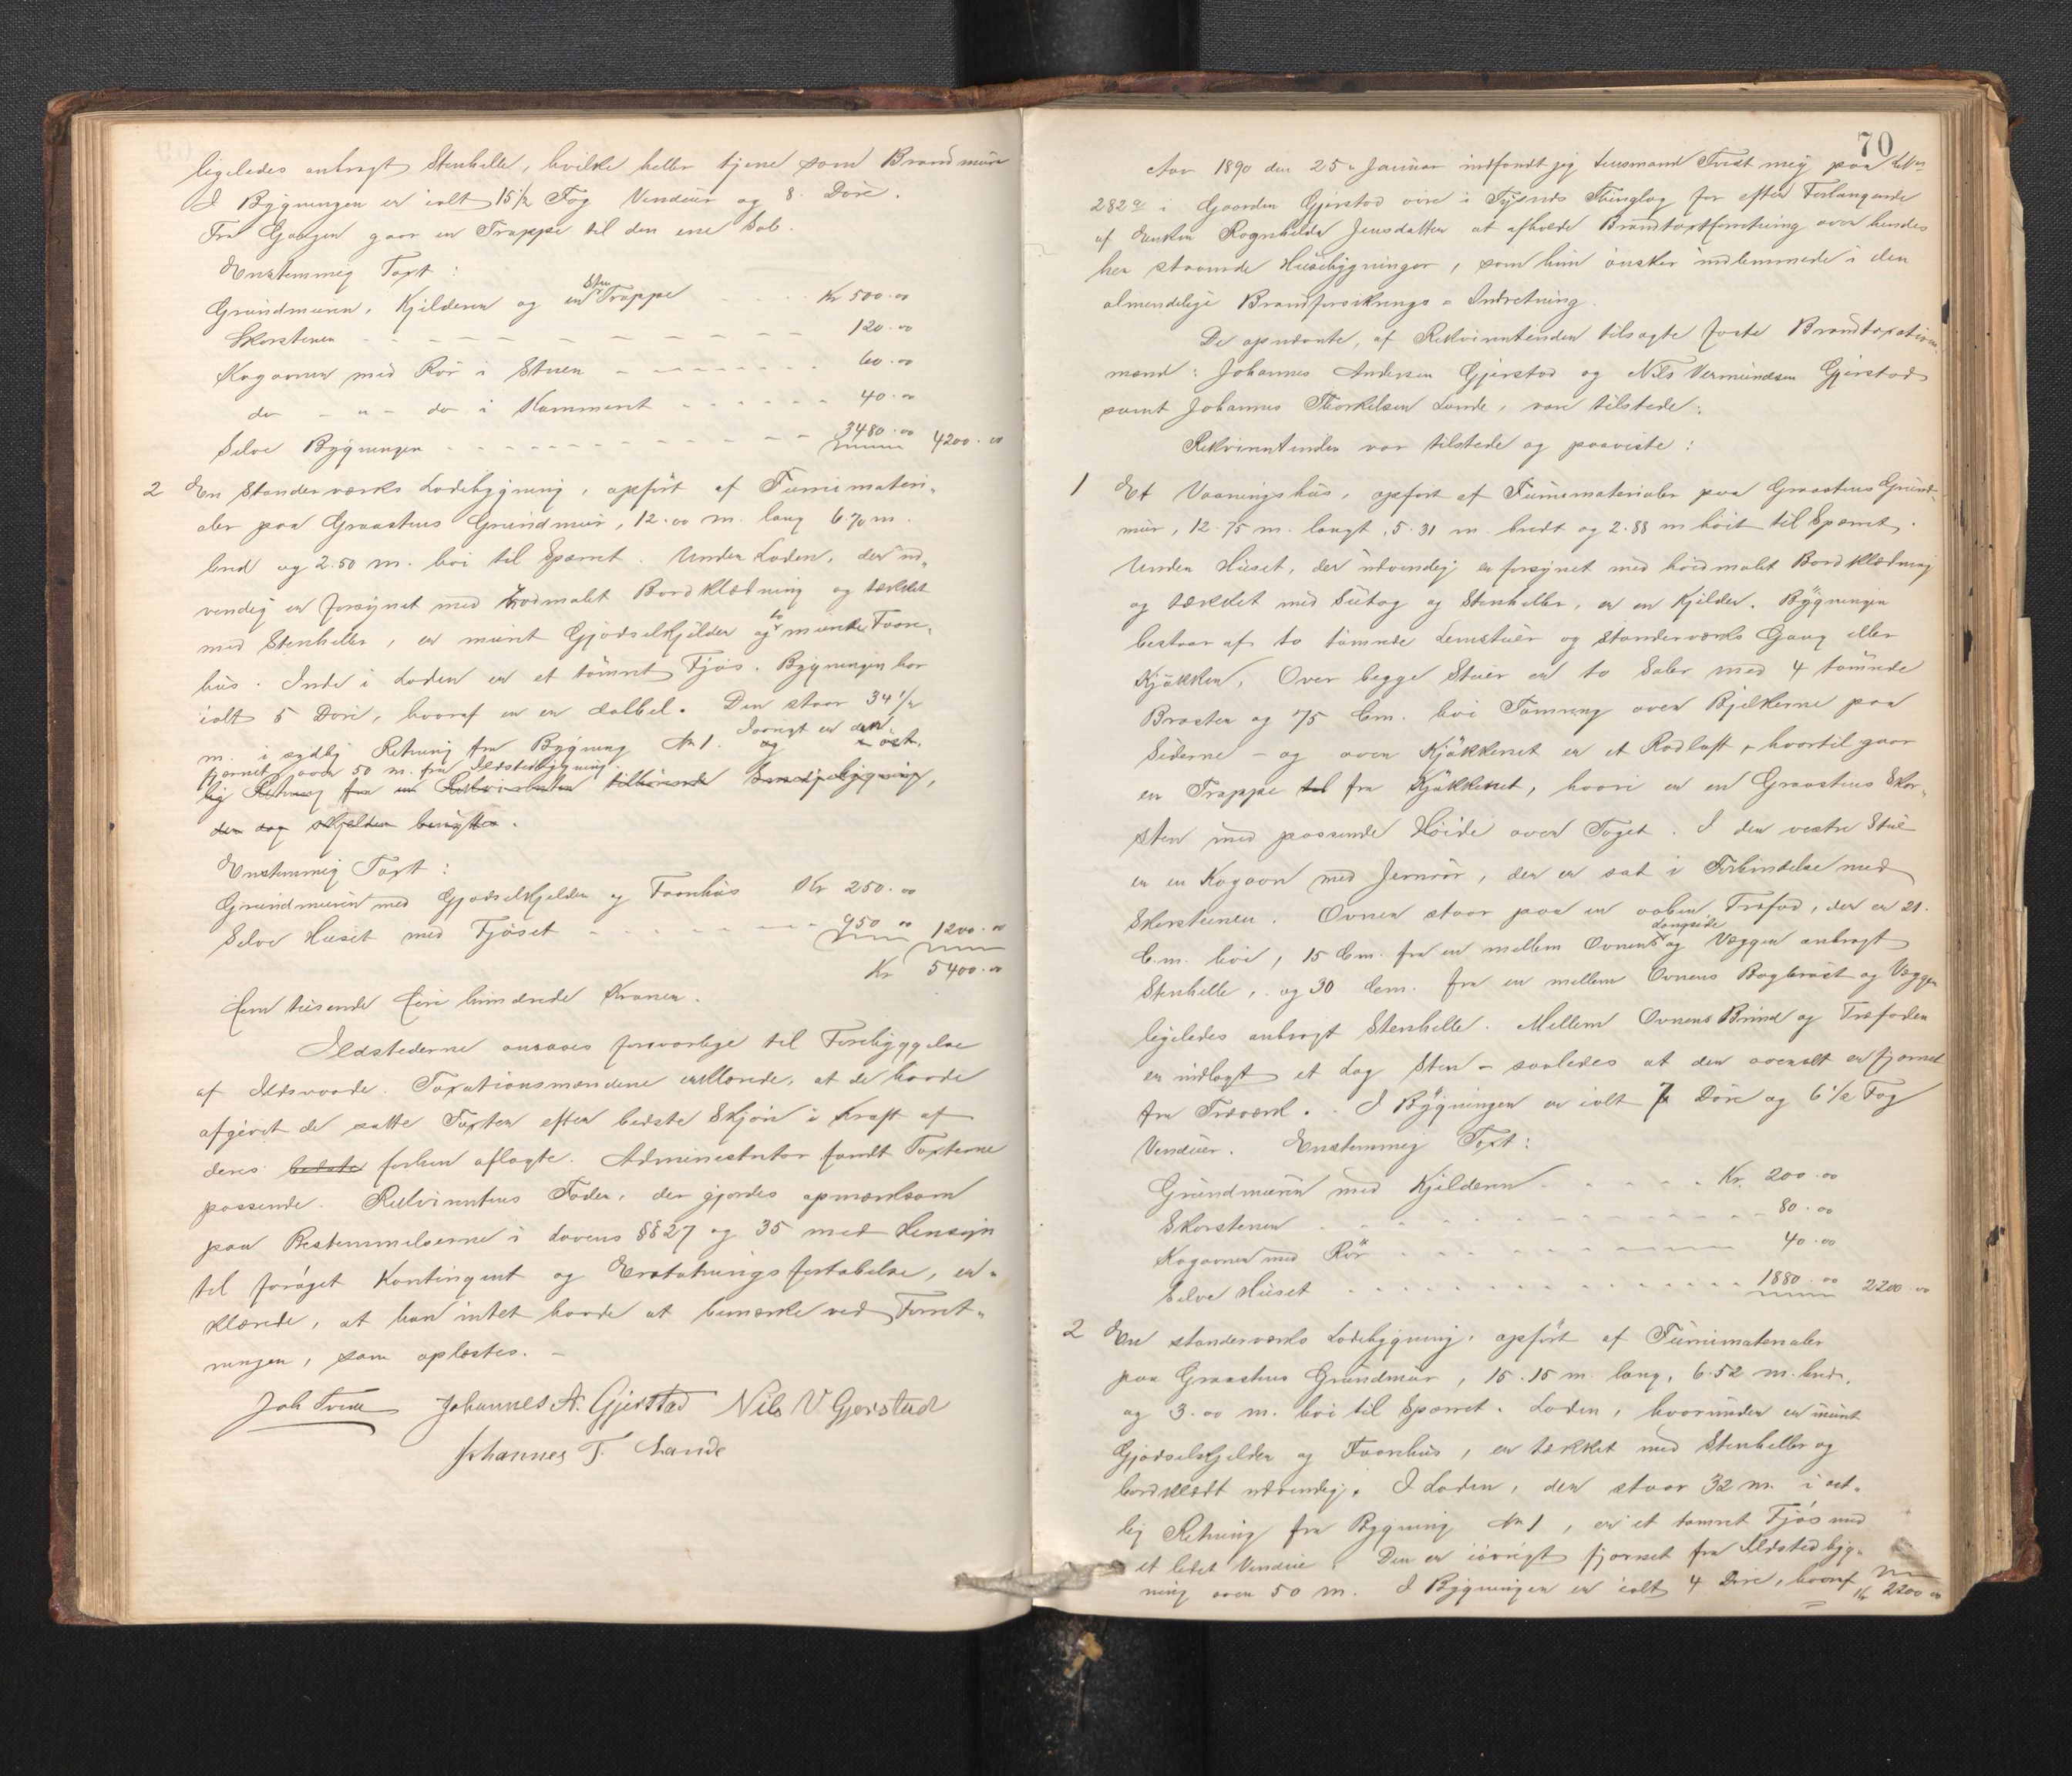 ligeledes anbragt Stenhelle, hvilke heller tjene som Brandmure
I Bygningen er ialt 15 1/2 Fag Vinduer og 8 Døre.
Fra Gangen gaar en Trappe til den ene Sal.
Enstemmig Taxt:
Grundmuren, Kjelderen og en Sten Trappe Kr 500.00
Skorstenen 120.00
Kogovnen med Rør i Stuen 60.00
do - " - do i Kammeret 40.00
Selve Bygningen 3480.00 4200.00
2 En Standerværks Ladebygning, opført af Furumateri-
aler paa Graastens Grundmur, 12.00 m. lang 6.70 m.
bred og 2.50 m. høi til Sparret. Under Laden, der ud-
vendig er forsynet med rødmalet Bordklædning og tækket
med Stenheller, er muret Gjødselkjelder og to murede Foor-
hus. Inde i Laden er et tømret Fjøs. Bygningen har
ialt 5 Døre, hvoraf en er dobbel. Den staar 34 1/2
m. i sydlig Retning fra Bygning No 1. og Iøvrigt er den i øst-
fjernet over 50 m. fra Ildstedbygning.
lig Retning fra en Rekvirenten tilhørende Smedjebygning,
der dog sjelden benyttes.
Enstemmig Taxt:
Grundmuren med Gjødselkjelder og Foorhus Kr 250.00
Selve Huset med Fjøset 950 00 1200.00
Kr 5400.00
Fem tusende fire hundrede Kroner.
Ildstederne ansaaes forsvarlige til Forebyggelse
af Ildsvaade. Taxationsmændene erklærede, at de havde
afgivet de satte Taxter efter bedste Skjøn i Kraft af
deres bedste forhen aflagte. Administrator fandt Taxterne
passende. Rekvirentens Fader, der gjordes opmærksom
paa Bestemmelserne i Lovens §§ 27 og 35 med Hensyn
til forøget Kontingent og Erstatnings fortabelse, er-
klærede, at han intet havde at bemærke ved Forret-
ningen, som oplæstes. -
Joh Tvedt Johannes A. Gjerstad Nils V Gjerstad
Johannes T. Lande
70
Aar 1890 den 25. Januar indfandt jeg Lensmand Tvedt mig paa
282 i Gaarden Gjerstad øvre i Tysnes Thinglag for efter Forlangende
af Enken Ragnhilda Jensdatter at afholde Brandtaxtforretning over hendes
her staaende Husebygninger, som hun ønsker indlemmede i den
almindelige Brandforsikrings-Indretning.
De opnævnte, af Rekvirentinden tilsagte faste Brandtaxations-
mænd: Johannes Andersen Gjerstad og Nils Vermundsen Gjerstad
samt Johannes Thorkelsen Lande, vare tilstede:
Rekvirentinden var tilstede og paaviste:
1 Et Vaaningshus, opført af Furumaterialer paa Graastens Grund-
mur, 12.75 m. langt, 5.31 m. bredt og 2.88 m høit til Sparret.
Under Huset, der udvendig er forsynet med hvidmalet Bordklædning
og tækket med Sutag og Stenheller, er en Kjelder. Bygningen
bestaar af to tømrede Lemstuer og standerværks Gang eller
Kjøkken. Over begge Stuer er to Saler med 4 tømrede
Braster og 75 Cm. høi Tømring over Bjelkerne paa
Siderne - og over Kjøkkenet er et Rodloft, hvortil gaar
en Trappe til fra Kjøkkenet, hvori er en Graastens Skor-
sten med passende Høide over Taget. I den vestre Stue
er en Kogovn med Jernrør, der er sat i Forbindelse med
Skorstenen. Ovnen staar paa en aaben Træfod, der er 21.
C.m. høi, 15 Cm. fra en mellem Ovnens Langside og Væggen anbragt
Stenhelle, og 30 Cm. fra en mellem Ovnens Bagbryst og Væggen
ligeledes anbragt Stenhelle. Mellem Ovnens Bund og Træfoden
er indlagt et Lag Sten - saaledes at den overalt er fjernet
fra Træværk. I Bygningen er ialt 7 Døre og 6 1/2 Fag
Venduer. Enstemmig Taxt:
Grundmuren med Kjelderen Kr. 200.00
Skorstenen 80.00
Kogovnen med Rør 40.00
Selve Huset 1880.00 2200.00
2 En standerværks Ladebygning, opført af Furumaterialer
paa Graastens Grundmur, 15.15 m. lang, 6.52 m. bred,
og 3.00 m. høi til Sparret. Laden, hvorunder er muret
Gjødselkjelder og Foorhus, er tækket med Stenheller og
bordklædt udvendig. I Laden, der staar 32 m. i øst-
lig Retning fra Bygning No 1, er et tømret Fjøs med
et lidet Vendue. Den er iøvrigt fjernet fra Ildstedbyg-
ning over 50 m. I Bygningen er ialt 4 Døre, hvoraf Kr 2200 00